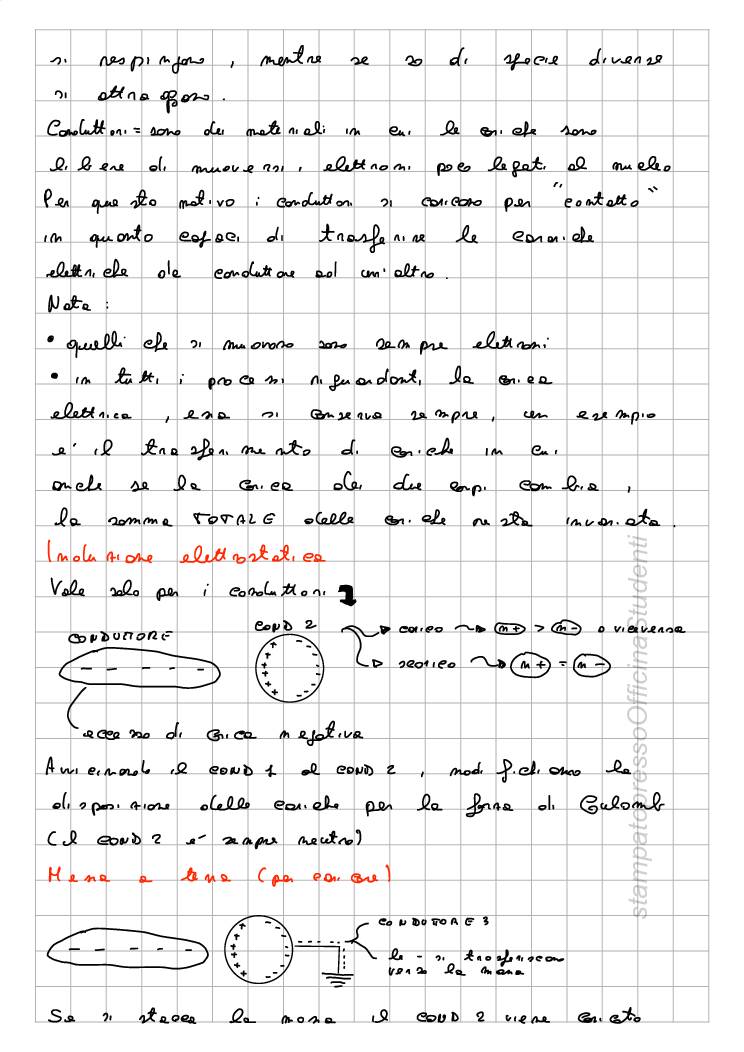 si respingono, mentre se so di specie diverse
si attraggono.
Conduttori = sono dei materiali in cui le cariche sono
libere di muoversi, elettroni poco legati al nucleo
Per questo motivo i conduttori si caricano per "contatto"
in quanto capaci di trasferire le cariche
elettriche da conduttore ad un'altro.
Nota:
• quelli che si muovono sono sempre elettroni
• in tutti i processi riguardanti la carica
elettrica, essa si conserva sempre, un esempio
e' il trasferimento di cariche in cui
anche se la carica dei due corpi cambia,
la somma TOTALE delle cariche resta invariata.
Induzione elettrostatica
Vale solo per i conduttori
CONDUTTORE
COND 2
carico → n+ > n- o viceversa
scarico → n+ = n-
eccesso di carica negativa
Avvicinando il COND 1 al COND 2, modifichiamo la
disposizione delle cariche per la forza di Coulomb
(il COND 2 e' sempre neutro)
Messa a terra (per caricare)
CONDUTTORE 3
le - si trasferiscono
verso la massa
Se si stacca la massa il COND 2 viene caricato
stampatopressoOfficinaStudenti